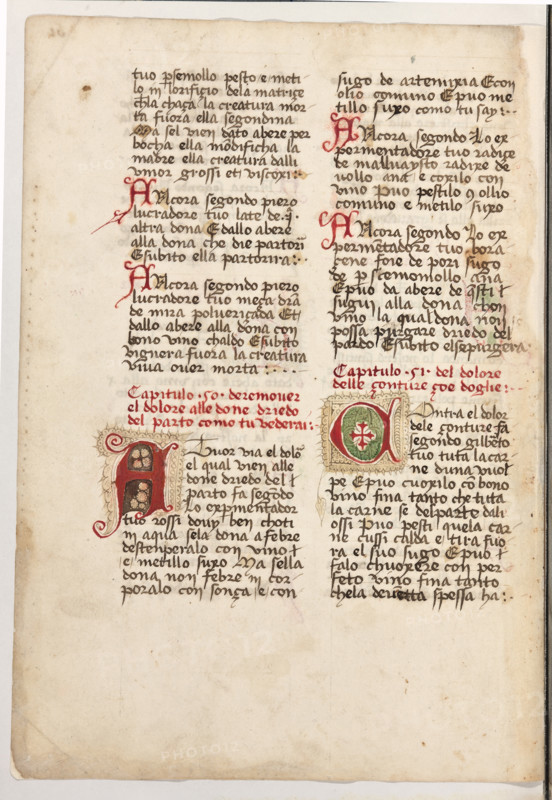 tuo p̄semollo pesto e meti
lo in lorificio dela matrice
chla chaça la creatura mor
ta fuora ella segondina
Ma sel vien dato abere per
bocha ella modificha la
madre ella creatura dalli
umor grossi et viscoxi:
Ancora segondo piero
lucradore tuo late de .i̅.
altra dona E dallo abere
alla dona che die partorī
E subito ella partorira:·
Ancora segondo piero
lucradore tuo meça drā
de mira poluericada Et
dallo abere alla dona con
bono vino chaldo E subito
vignera fuora la creatura
viva over morta:·
Capitulo .50. deremover
el dolore alle done driedo
del parto como tu vederai:
Atuor via el dolō
el qual vien alle
done driedo del
parto fa segōdo
Lo expmentador
tuo rossi dovy ben choti
in aqua sela dona a febre
destenperalo con vino
e metillo suxo Ma sella
dona non febre in cor
poralo con sonça e con
sugo de artemixia E con
olio comuno E puo me
tillo suxo como tu say:·
Ancora segondo Lo ex
pormentadore tuo radixe
de malvaysto radixe de
vollo ana e coxilo con
vino Puo pestilo 9 ollio
comuno e metilo suxo
Ancora segondo Lo ex
permentadore tuo pora
çene foie de pori sugo
de p̄scemomollo ana
E puo da abere de q̄sti
sugui alla dona chon
vino la qual dona non
possa purgare driedo del
pardo E subito else purgera
Capitulo .51. del dolore
delle çonture çoe doglie:·
Contra el dolor
dele çonture fa
segondo gilberto
tuo tuta la car
ne duna vuol
pe E puo cuoxilo cō bono
vino fina tanto che tuta
la carne se delparte dali
ossi Puo pesti quela car
ne cussi calda e tira fuo
ra el suo sugo E puo
falo chuoxere con per
feto vino fina tanto
chela deventa spessa ha:·